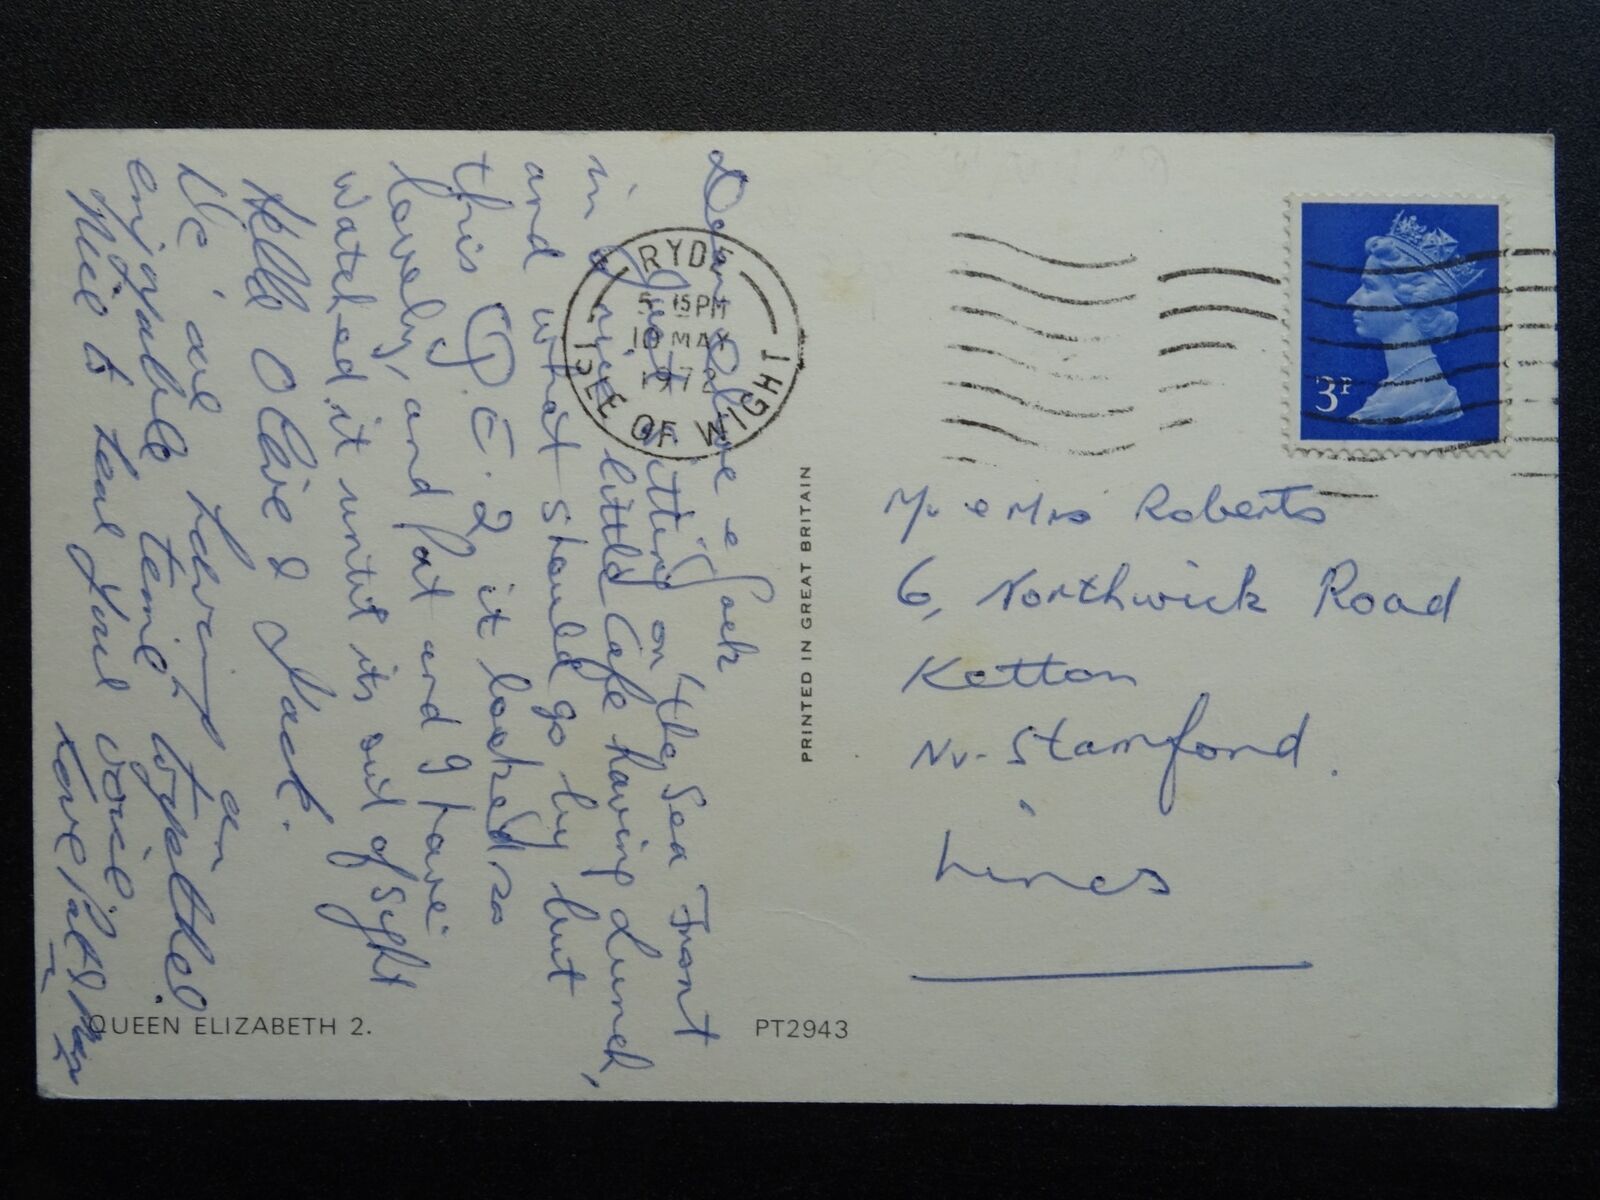 Dear Olive & Jack
Just sitting on the Sea Front
in a nice little Cafe having Lunch,
and what should go by but
this Q.E.2 it looked so
lovely, and Pat and I have
watched it until its out of sight
Hello Olive & Jack.
We are having an
enjoyable time together.
Nice to hear your voice.
Love Pat &
RYDE
5 15 PM
10 MAY
1972
ISLE OF WIGHT
3P
Mr & Mrs Roberts
6, Northwick Road
Ketton
Nr. Stamford.
Lincs
PRINTED IN GREAT BRITAIN
QUEEN ELIZABETH 2.
PT2943